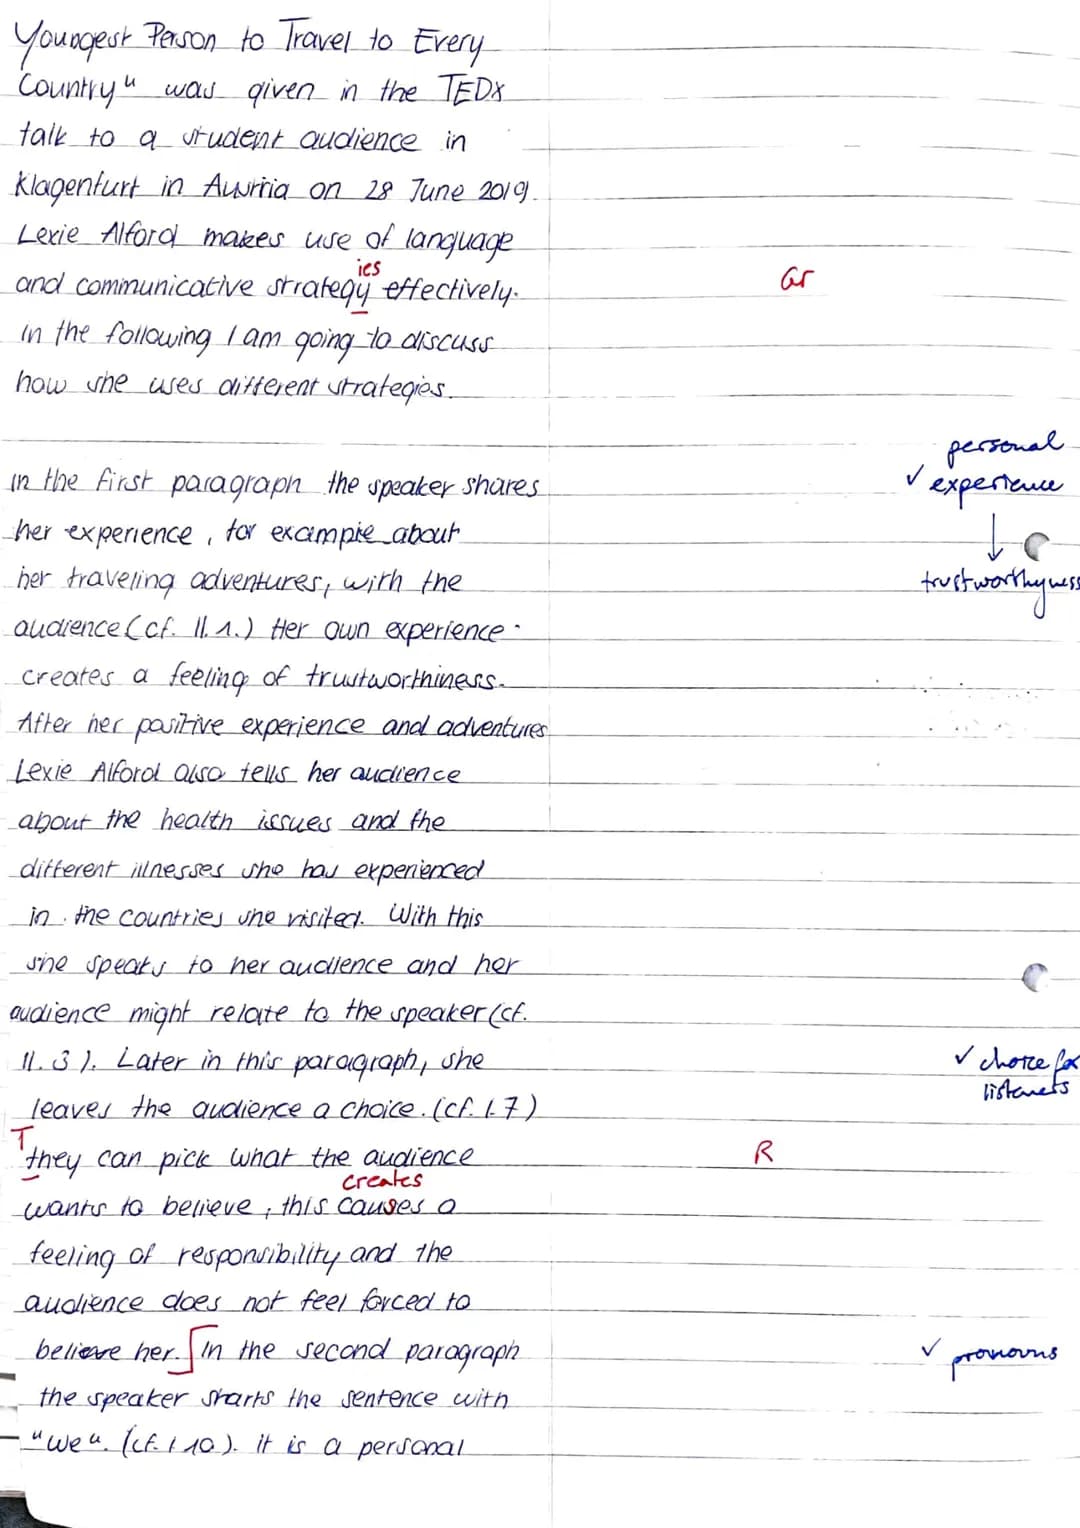 Youngest Person to Travel to Every
Country" was given in the TEDx
talk to a student audience in
Klagenfurt in Austria on 28 June 2019.
Lexie Alford makes use of language
ies
and communicative strategy effectively. Gr
in the following I am going to discuss
how she uses different strategies.
personal
in the first paragraph the speaker shares ✓ experience
her experience, for example about ↓
her traveling adventures, with the trustworthyness
audience (cf. ll. 1.) Her own experience
creates a feeling of trustworthiness.
After her positive experience and adventures
Lexie Alford also tells her audience
about the health issues and the
different illnesses she has experienced
in the countries she visited. With this
she speaks to her audience and her
audience might relate to the speaker (cf.
ll. 3 ). Later in this paragraph, she ✓ choice for
leaves the audience a choice. (cf. l. 7) listeners
T
they can pick what the audience R
creates
wants to believe, this causes a
feeling of responsibility and the
audience does not feel forced to
believe her. in the second paragraph ✓ pronouns
the speaker starts the sentence with
"we". (cf. l 10.). it is a personal